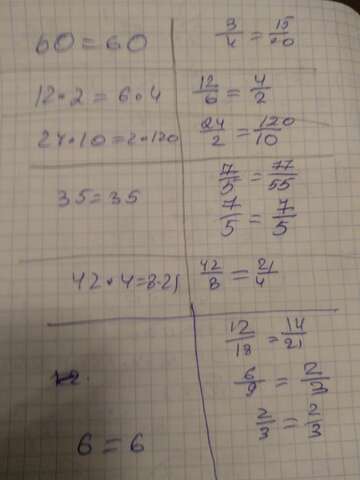 60 = 60
3/4 = 15/20
12 · 2 = 6 · 4
12/6 = 4/2
24 · 10 = 2 · 120
24/2 = 120/10
7/5 = 77/55
35 = 35
7/5 = 7/5
42 · 4 = 8 · 21
42/8 = 21/4
12/18 = 14/21
6/9 = 2/3
2/3 = 2/3
6 = 6